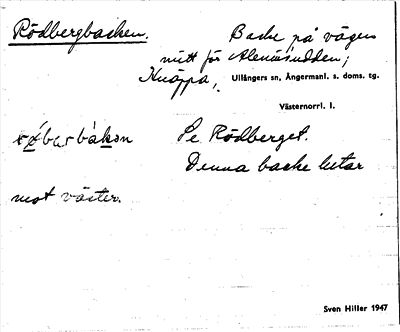 Rödbergbacken.
Backe på vägen
mitt för Alenäsudden;
Knäppa, Ullångers sn, Ångermanl. s. doms. tg.
Västernorrl. l.
Se Rödberget.
Denna backe lutar
mot väster.
Sven Hiller 1947